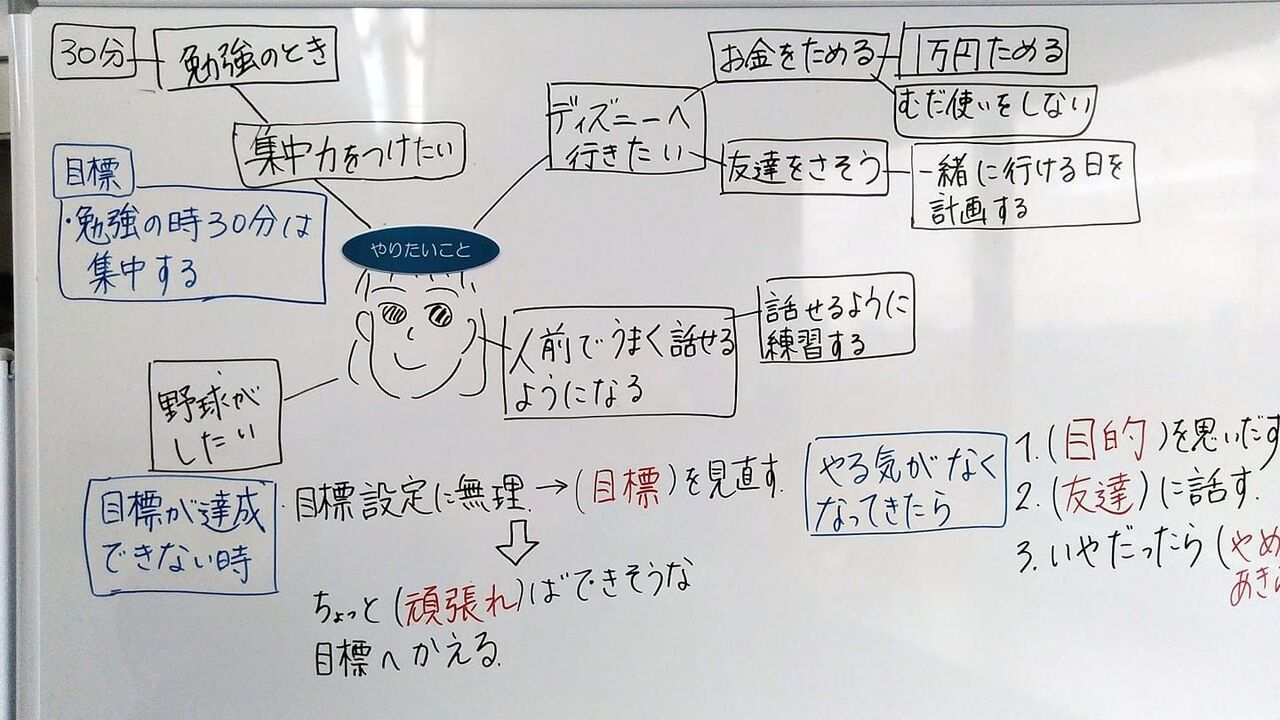 30分
勉強のとき
集中力をつけたい
目標
・勉強の時30分は
集中する
ディズニーへ
行きたい
お金をためる
1万円ためる
むだ使いをしない
友達をさそう
一緒に行ける日を
計画する
やりたいこと
人前でうまく話せる
ようになる
話せるように
練習する
野球が
したい
目標が達成
できない時
目標設定に無理→(目標)を見直す.
ちょっと(頑張れ)ばできそうな
目標へかえる.
やる気がなく
なってきたら
1.(目的)を思いだす
2.(友達)に話す.
3.いやだったら(やめ
あき